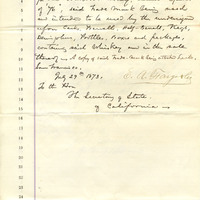 of Yo', said Trade Mark being used
and intended to be used by the undersigned
upon Cans, Barrels, Half-Barrels, Kegs,
Demijohns, Bottles, Boxes and packages,
containing said Whiskey and in the sale
thereof. A copy of said Trade Mark being attached hereto.
San Francisco,
July 29th 1873.
To the Hon
The Secretary of State
of California